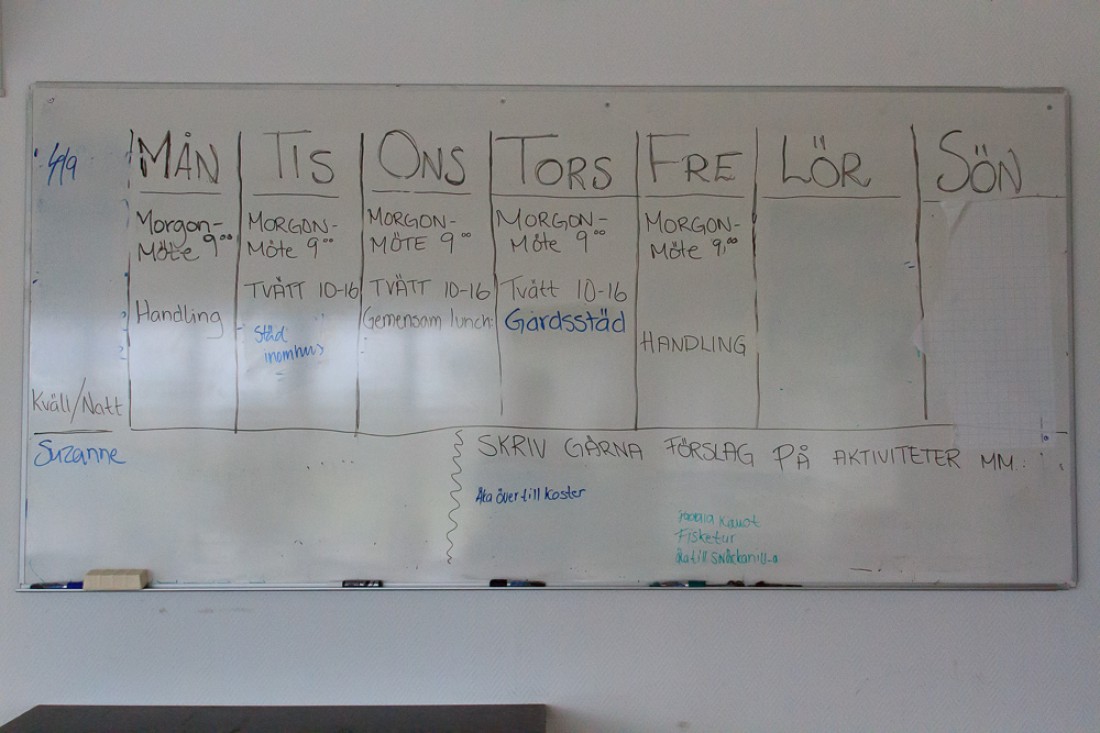 4/9
MÅN
TIS
ONS
TORS
FRE
LÖR
SÖN
Morgon-
Möte 9⁰⁰
Handling
MORGON-
Möte 9⁰⁰
TVÄTT 10-16
Städ
inomhus
MORGON-
MÖTE 9⁰⁰
TVÄTT 10-16
Gemensam lunch
MORGON-
Möte 9⁰⁰
Tvätt 10-16
Gårdsstäd
MORGON-
Möte 9,⁰⁰
HANDLING
Kväll/Natt
Suzanne
SKRIV GÄRNA FÖRSLAG PÅ AKTIVITETER MM.:
Åka över till Koster
Kanot
Fisketur